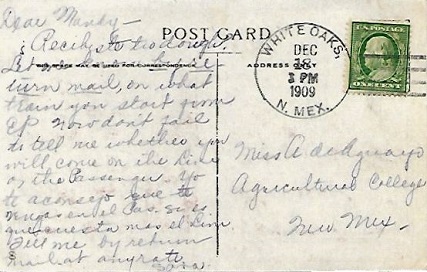 Dear Mandy -
POST CARD
Recibiste tio
THIS SPACE MAY BE USED FOR CORRESPONDENCE
ADDRESS ONLY
WHITE OAKS,
DEC
18
3 PM
1909
N. MEX.
U.S. POSTAGE
ONE CENT
Let me
turn mail, on what
train you start from
EP Now don't fail
to tell me whether you
will come on the Lim
or the Passenger. Yo
te aconsejo que te
vengas en el Pas.
que cuesta mas el Lim.
Tell me by return
mail at any rate
Miss A de Aguayo
Agricultural College
New Mex.